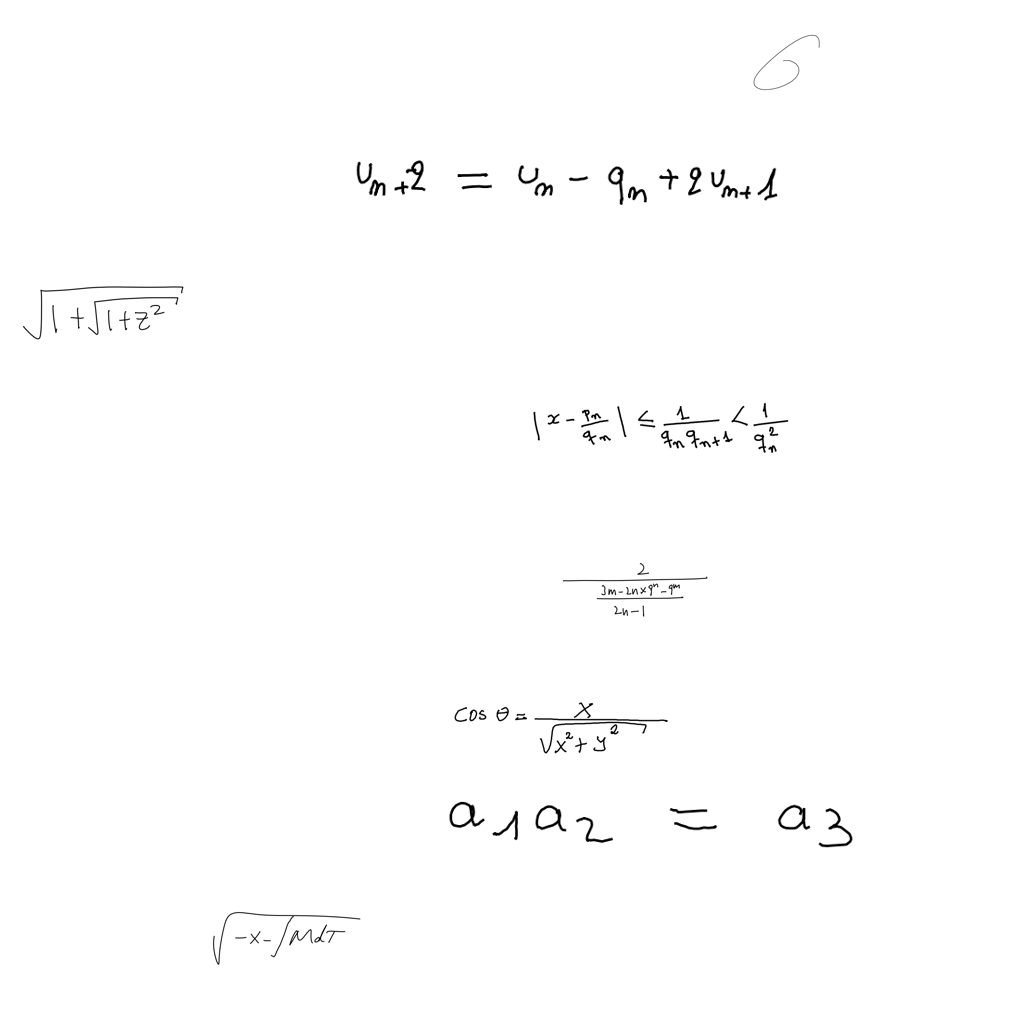 6
u_{n+2} = u_n - q_{n+2} u_{n+1}
\sqrt{1+\sqrt{1+z^2}}
|x - \frac{p_n}{q_n}| \leq \frac{1}{q_n q_{n+1}} < \frac{1}{q_n^2}
\frac{2}{\frac{3m-2n \times 9^n - 9^m}{2n-1}}
\cos \theta = \frac{x}{\sqrt{x^2+y^2}}
a_1 a_2 = a_3
\sqrt{-x-\int M dT}